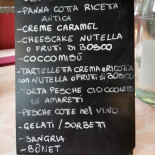 - PANNA COTTA RICETTA
ANTICA
- CREME CARAMEL
- CHEESCAKE NUTELLA
O FRUTTI DI BOSCO
- COCCOMISÙ
- TARTELLETTA CREMA E RICOTTA
CON NUTELLA O FRUTTI DI BOSCO
- TORTA PESCHE CIOCCOLATO
ED AMARETTI
- PESCHE COTTE NEL VINO
- GELATI / SORBETTI
- SANGRIA
- BONET